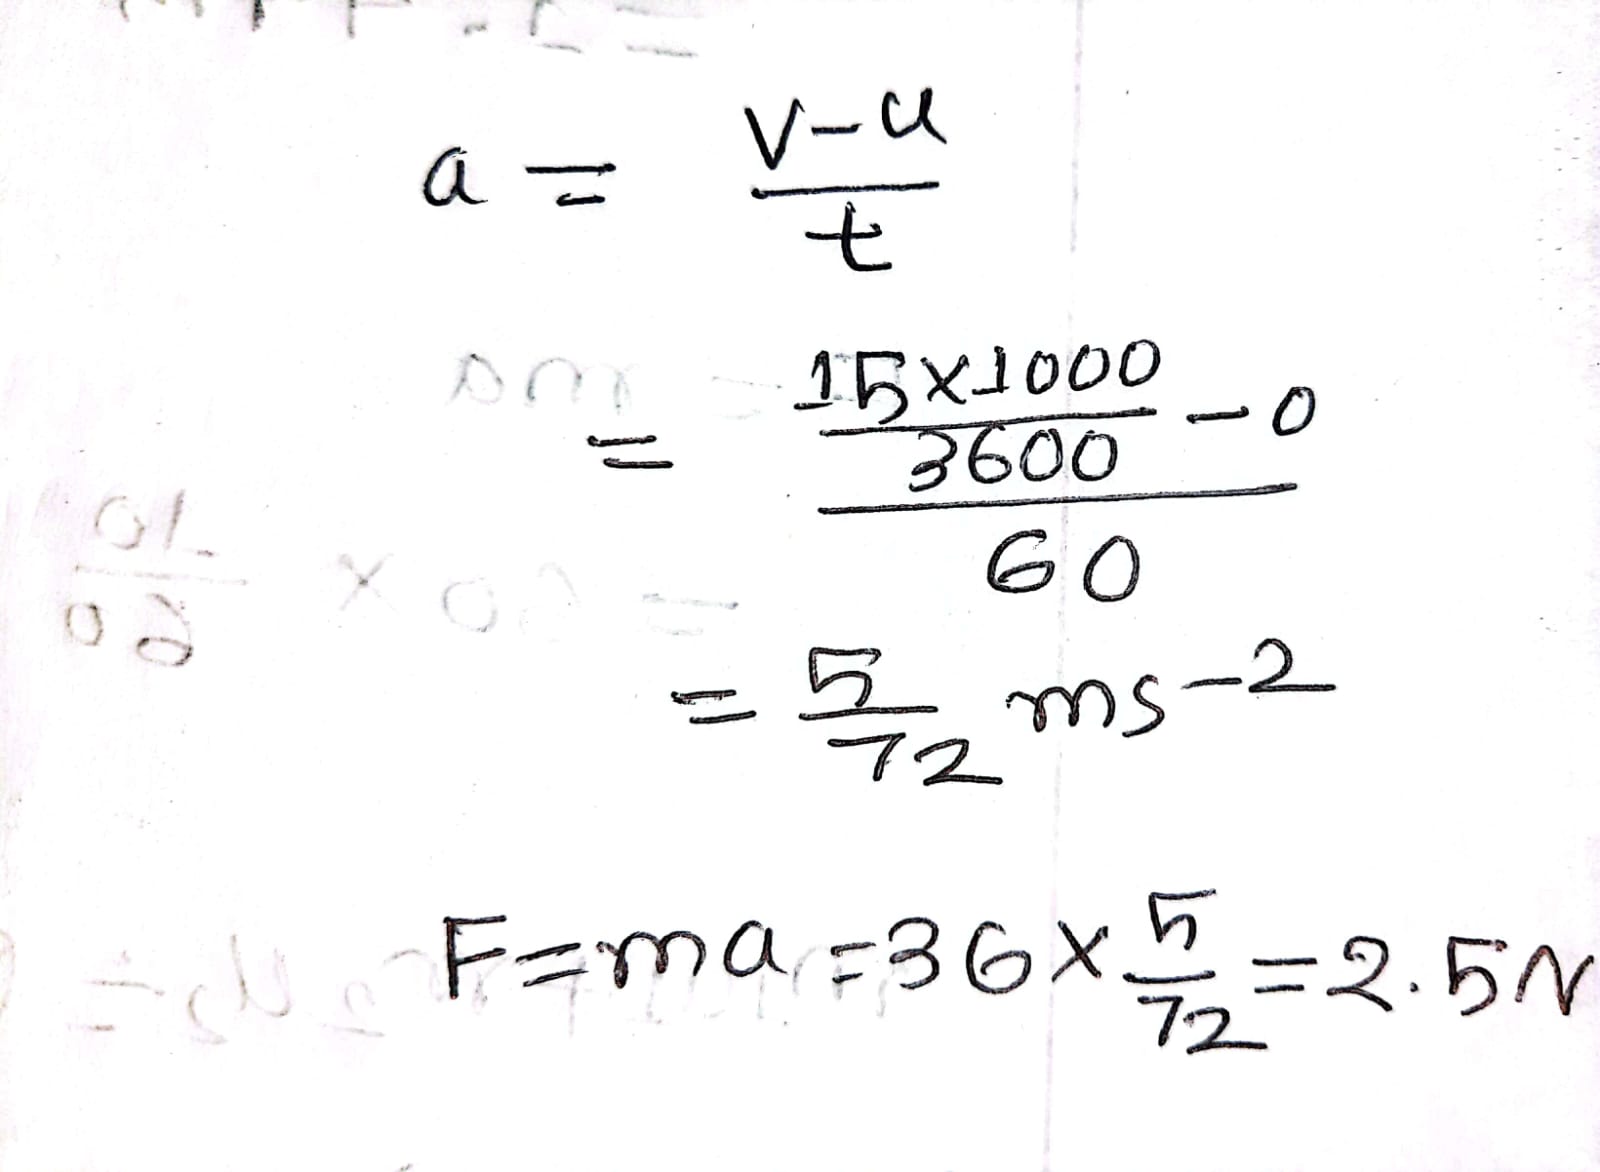 a = v-u / t
= 15×1000 / 3600 - 0 / 60
= 5/72 ms-2
F=ma=36×5/72=2.5N